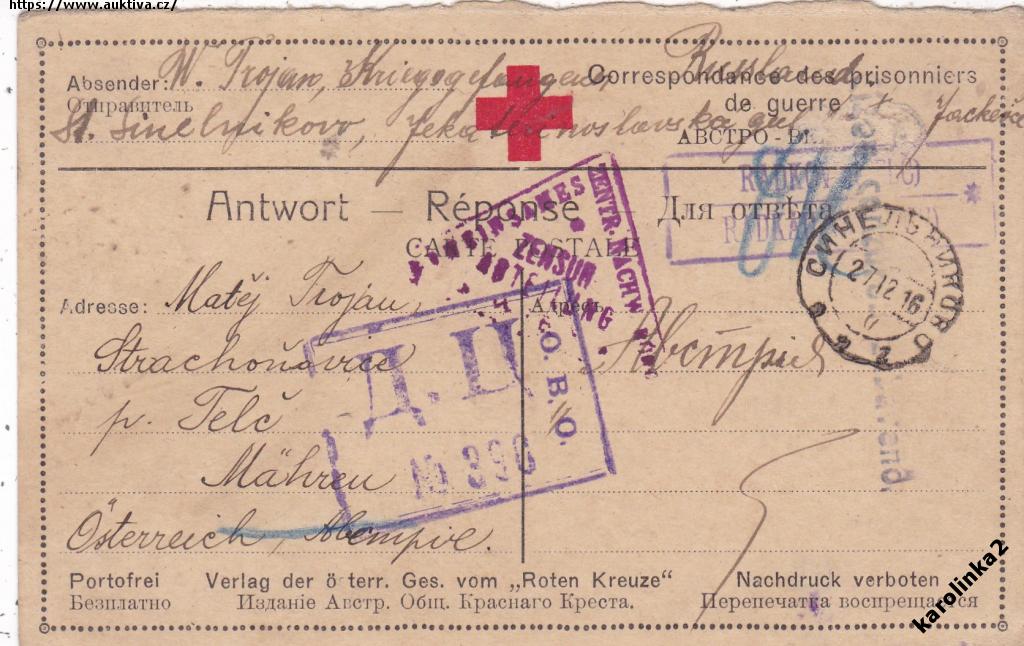 https://www.auktiva.cz/
Absender: W. Trojan, Kriegsgefangener, Russland
Отправитель
Correspondance des prisonniers
de guerre
St. Sinelnikovo, Jekaterinoslavska
АВСТРО-
Antwort — Réponse Для отвѣта
CARTE POSTALE
ZENTR. NACHW.
ZENSUR
ABTEILUNG
СИНЕЛЬНИКОВО
27 12 16
Adresse: Matěj Trojan, Адресъ
Strachoňovice
Австрія
p. Telč
Mähren
Österreich,
Д. Ц
О. В. О.
Portofrei Verlag der österr. Ges. vom „Roten Kreuze“ Nachdruck verboten
Безплатно Изданіе Австр. Общ. Краснаго Креста. Перепечатка воспрещается
karolinka2